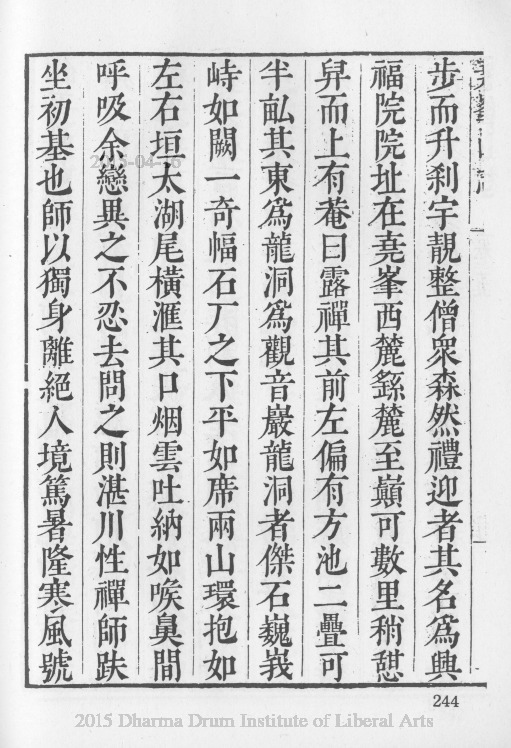 步而升刹宇靚整僧衆森然禮迎者其名爲興
福院院址在堯峯西麓繇麓至巔可數里稍憇
舁而上有菴曰露禪其前左偏有方池二疊可
半畆其東爲龍洞爲觀音巖龍洞者傑石巍峩
峙如闕一奇幅石厂之下平如席兩山環抱如
左右垣太湖尾橫滙其口烟雲吐納如喉臭間
呼吸余戀異之不忍去問之則湛川性禪師趺
坐初基也師以獨身離絕人境篤暑隆寒風號
244
2015-04-16
2015 Dharma Drum Institute of Liberal Arts